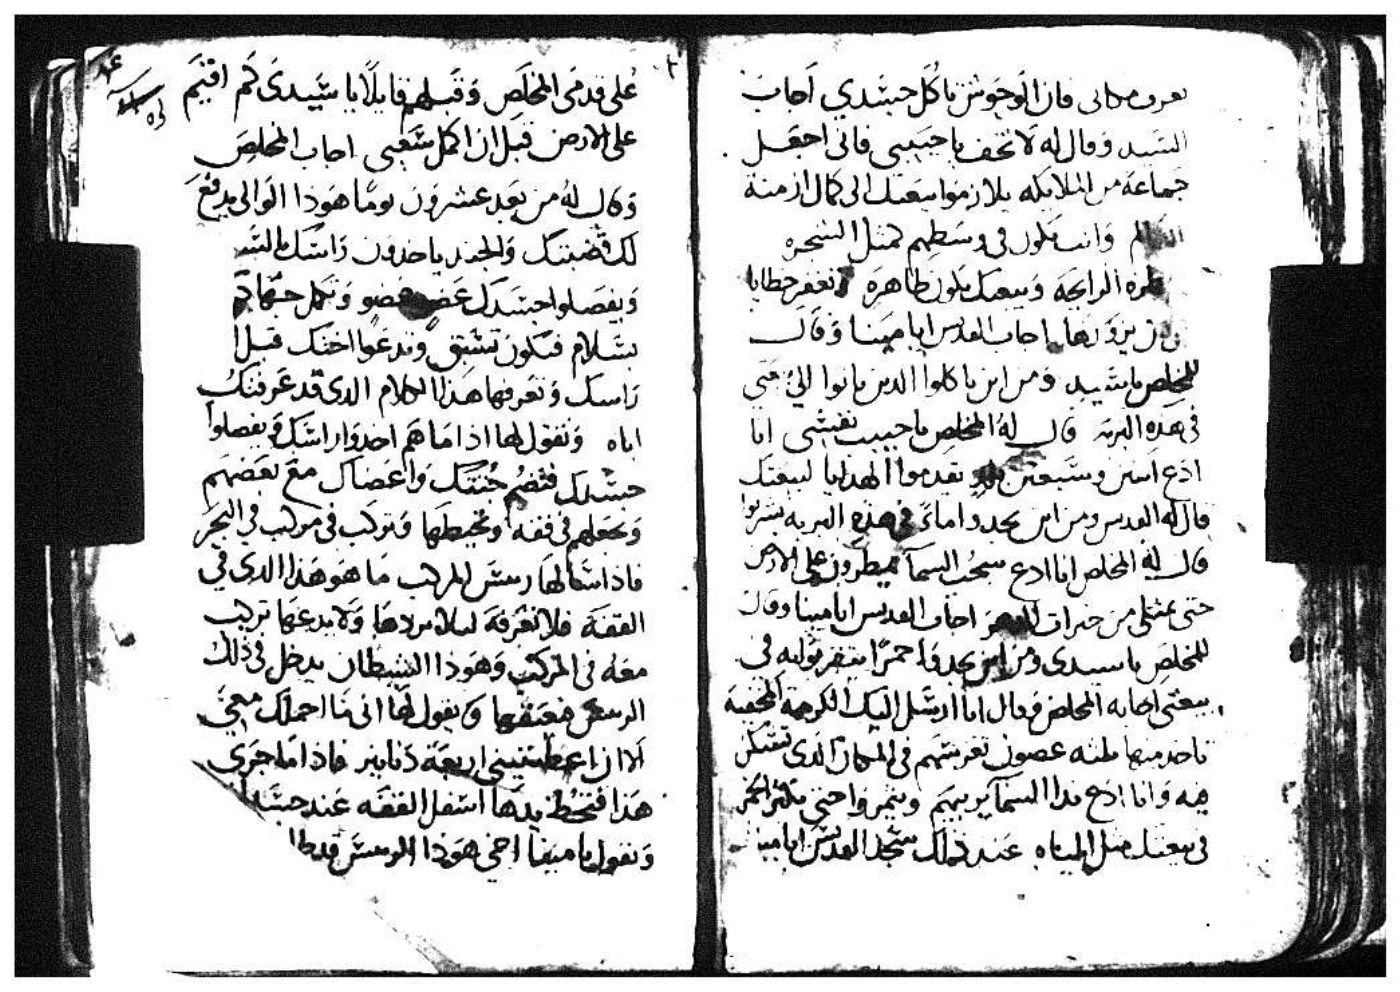 يعرف مكانى فان الوحوش ياكل جسدي اجاب
السيد وقال له لا تخف يا حبيبى فانى اجعل
جماعة من الملايكه يلازموا بيعتك الى كمال ازمنة
وانت تكون فى وسطهم كمثل الشجره
الرايحه وبيعتك تكون طاهره خطايا
اجاب القديس ابا مينا وقال
للمخلص يا سيد ومن اين ياكلوا الدين ياتوا الىٰ
فى هذه البريه قال له المخلص يا حبيب نفسى انا
ادع وسبعين يقدموا الهدايا لبيعتك
قال له القديس ومن اين يجدوا ماءً فى هذه البريه يشربوا
قال له المخلص انا ادع سحب السمآ يمطرون على الارض
حتى تمتلى من خيرات اجاب القديس ابا مينا وقال
للمخلص يا سيدى ومن اين يجدوا خمرًا يتقربوا به فى
بيعتى اجابه المخلص وقال انا ارسل اليك الكرمه
تاخد منها تلته غصون تغرسهم فى المكان الدى تسكن
فيه وانا ادع ندا السمآ يربيهم ويتمروا حتى تكتر الخمر
فى بيعتك متل المياه عند دلك سجد القديس ابا مينا
على قدمى المخلص وقبلهم قايلًا يا سيدى كم اقيم
على الارض قبل ان اكمل سعيى اجاب المخلص
وقال لهُ من بعد عشرون يومًا هودا الوالى يدفع
لك قضيتك والجند ياخدون راسك بالسيـ
ويفصلوا جسدك عضو عضو وتكمل جهادك
بسلام فتكون وتدعوا اختك قبل
راسك وتعرفها هدا الكلام الدى قد عرفتك
اياه وتقول لها ادا ما هم اخدوا راسك وفصلوا
جسدك فتضم جتتك واعضاك مع بعضهم
وتجعلهم فى قفه وتخيطها وتركب فى مركب فى البحر
فادا سالها ريس المركب ما هو هدا الدى فى
القفه فلا تعرفه ليلا يردها ولا يدعها تركب
معه فى المركب وهودا الشيطان يدخل فى دلك
الريس ويقول لها انى ما احملك معى
الا ان اعطيتينى اربعة دنانير فادا ما جرى
هدا فتحط يدها اسفل القفه عند جسدك
وتقول يا مينا اخى هودا الريس قد